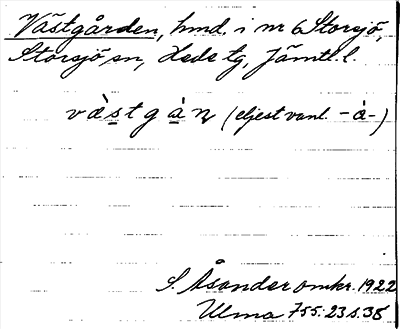 Västgården, hmd. i nr 6 Storsjö,
Storsjö sn, Hede tg, Jämtl. l.
vå̲̀s̲tgà̲n (eljest vanl. -à̲-)
S. Åsander omkr. 1922
Ulma 755:23 s. 38